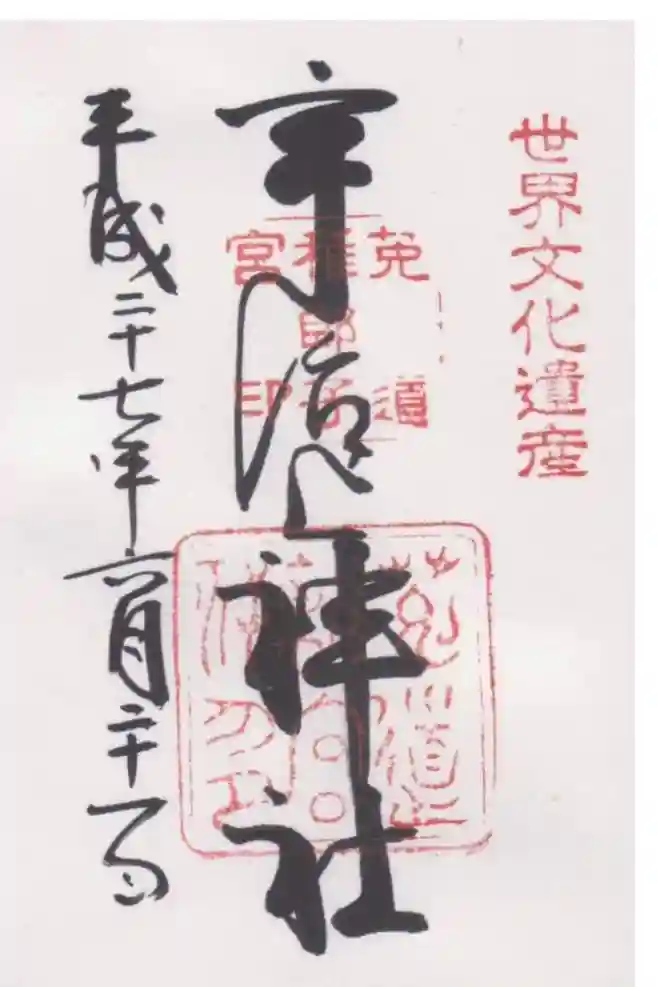 世界文化遺産
宇治上神社
莵道
稚郎子
宮印
平成二十七年六月二十一日